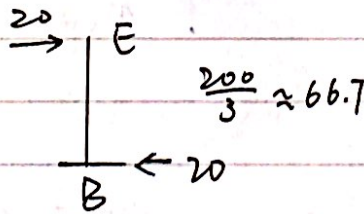 20
E
200/3 ≈ 66.7
← 20
B